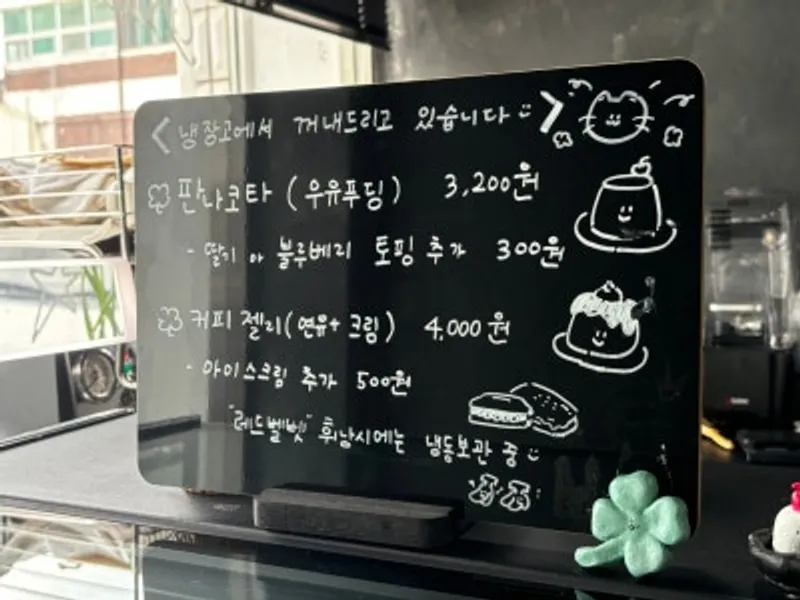 < 냉장고에서 꺼내드리고 있습니다 >
판나코타 (우유푸딩) 3,200원
- 딸기 or 블루베리 토핑 추가 300원
커피 젤리(연유+크림) 4,000원
- 아이스크림 추가 500원
"레드벨벳" 휘낭시에는 냉동보관 중